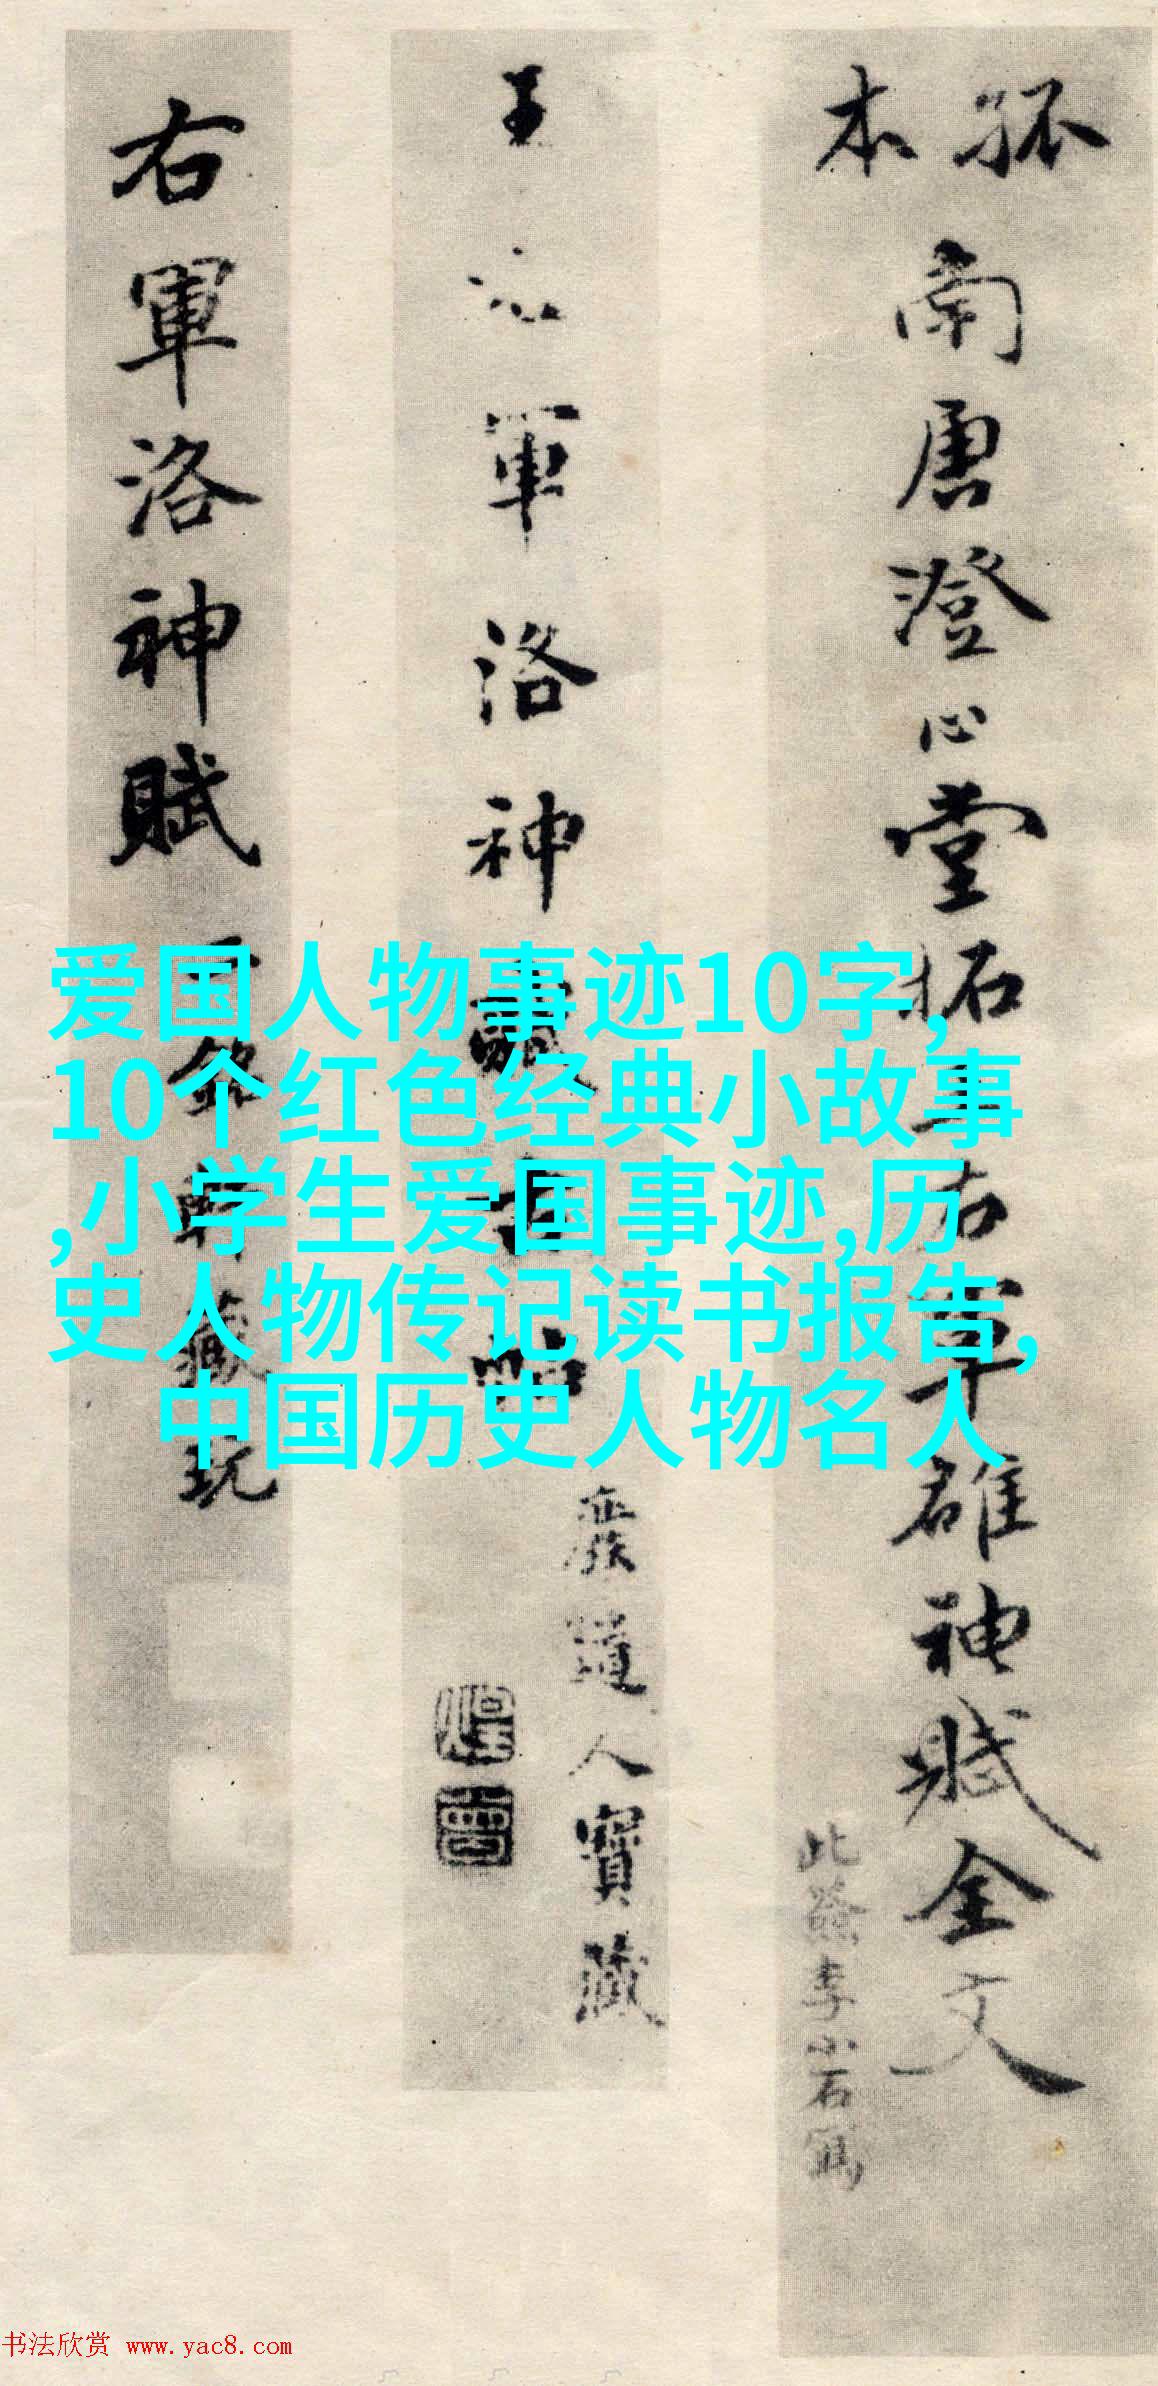 孤本
南唐澄心堂拓王右軍雒神賦全文
此簽李小石寫
王右軍洛神賦
唐道人寶藏
右軍洛神賦
軒藏玩
爱国人物事迹10字,
10个红色经典小故事
,小学生爱国事迹,历
史人物传记读书报告,
中国历史人物名人
书法欣赏 www.yac8.com